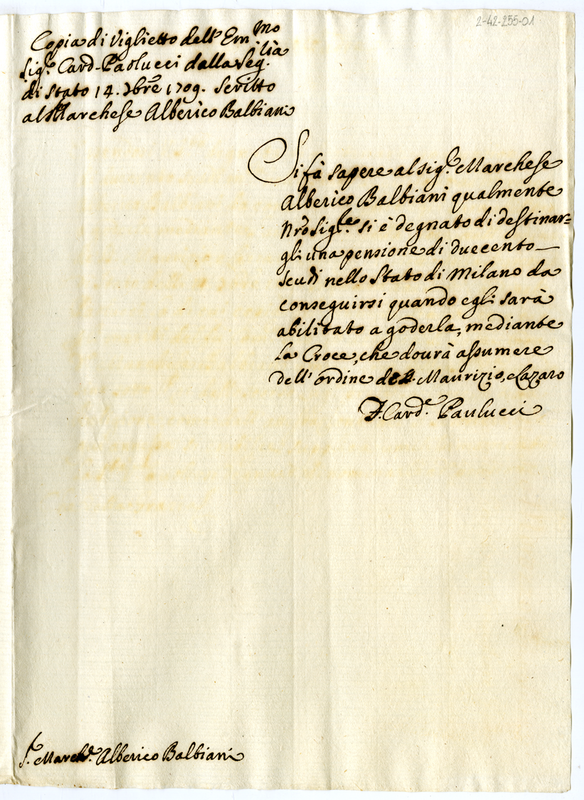 2-42-255-01
Copia di Viglietto dell' Em.mo
Sig.r Card. Paolucci dalla Seg.ria
di Stato 14. Xbre 1709. Scritto
al Marchese Alberico Balbiani
Si fà sapere al sig.r Marchese
Alberico Balbiani qualmente
Nrõ Sig.re si è degnato di destinar=
gli una pensione di duecento
scudi nello Stato di Milano da
conseguirsi quando egli sarà
abilitato a goderla, mediante
la Croce, che dourà assumere
dell' ordine de S. Maurizio, e Lazaro
F. Card.e Paulucci
S.r March.e Alberico Balbiani